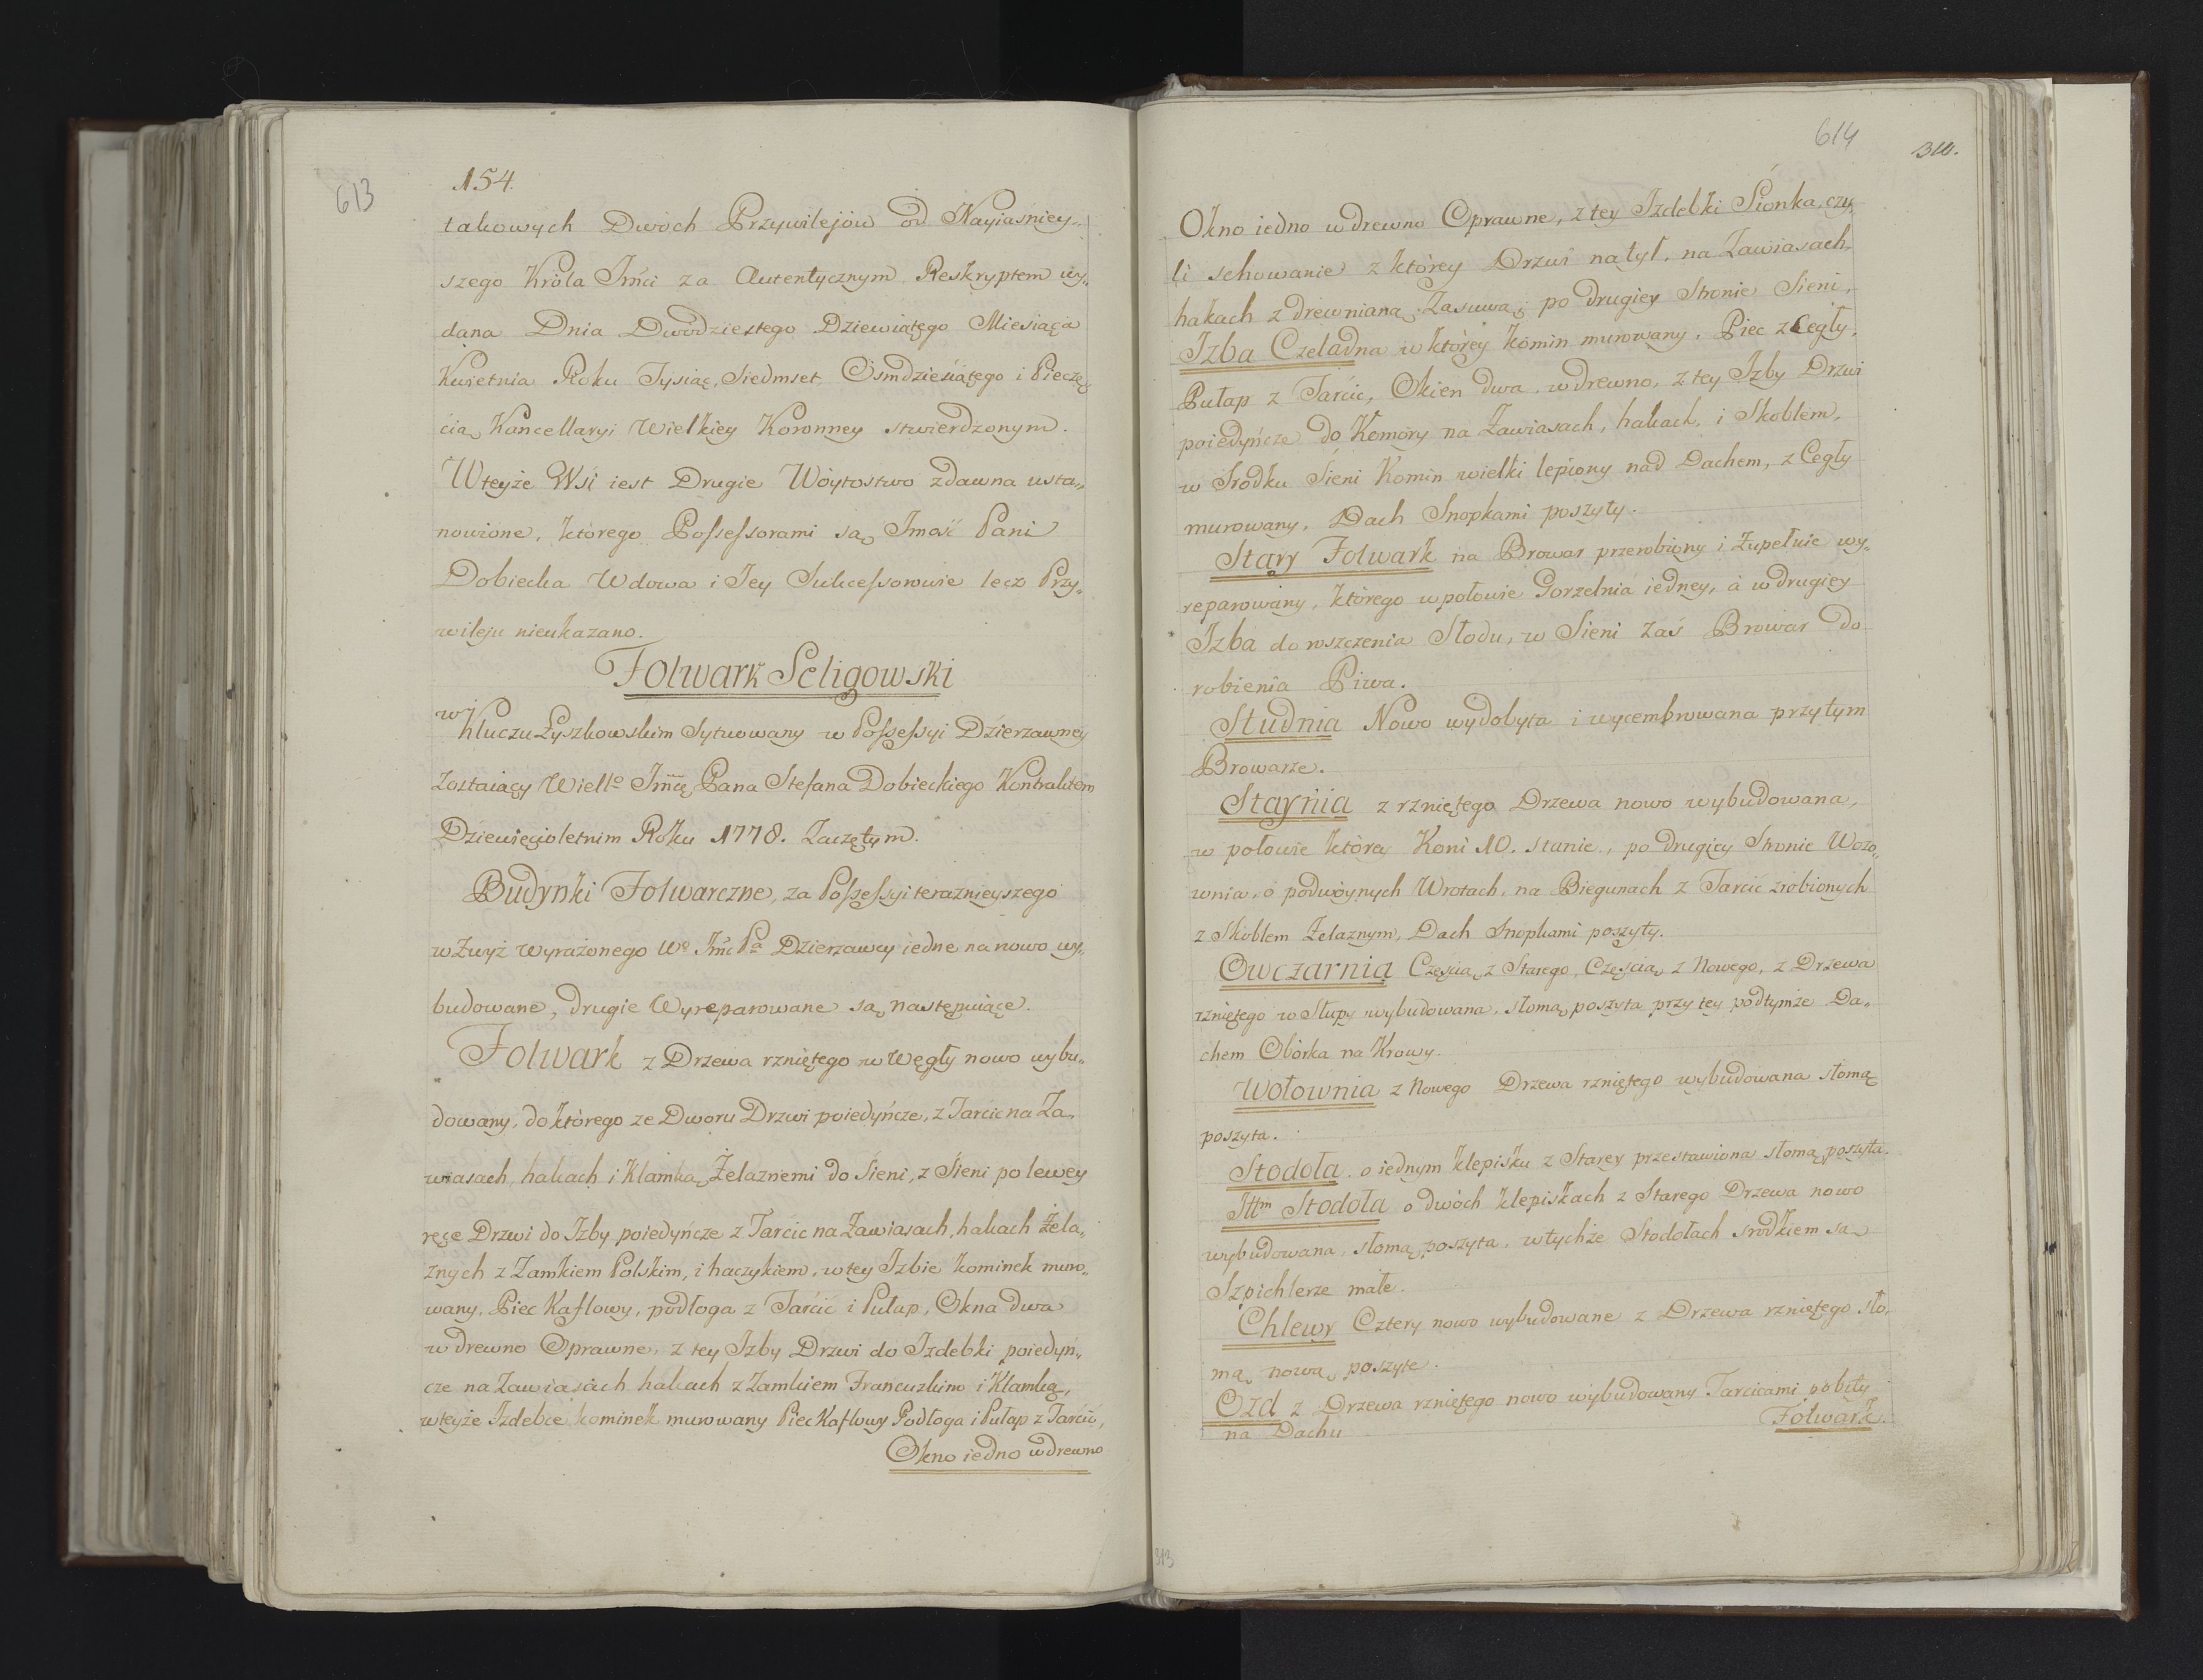 613
154.
takowych Dwóch Przywilejów od Nayiaśniey„
szego Króla Jmći za Autentycznym Reskryptem wy„
dana Dnia Dwódziestego Dziewiątęgo Miesiąca
Kwietnia Roku Tysiąc, Siedmset, Osmdziesiątego i Pieczę„
cią Kancellaryi Wielkiey Koronney stwierdzonym.
Wteyże Wśi iest Drugie Wóytostwo zdawna usta„
nowione, którego Possessorami są Jmość Pani
Dobiecka Wdowa i Jey Sukcessorowie lecz Przy„
wileju nieukazano.
Folwark Seligowski
w Kluczu Łyszkowskim Sytuowany w Possessyi Dzierzawney
zostaiący Wielło Jmci Pana Stefana Dobieckiego Kontraktem
Dziewięcioletnim Roku 1778. Zaczętym.
Budynki Folwarczne, za Possessyi teraznieyszego
wzwyż wyrażonego Wo Jmć Pa Dzierzawcy iedne na nowo wy„
budowane, drugie Wyreparowane są następuiące.
Folwark z Drzewa rzniętego w Węgły nowo wybu„
dowany, do którego ze Dworu Drzwi poiedyńcze, z Tarcic na Za„
wiasach, hakach i Klamką Żelaznemi do Sieni, z Sieni po lewey
ręce Drzwi do Izby poiedyńcze z Tarcic na Zawiasach, hakach Żela„
znych z Zamkiem Polskim, i haczykiem, wtey Izbie kominek muro„
wany, Piec Kaflowy, podłoga z Tarcic i Pułap, Okna dwa
w drewno Oprawne, z tey Izby Drzwi do Izdebki poiedyń„
cze na Zawiasach hakach z Zamkiem Francuzkim i Klamką,
wteyże Izdebce kominek murowany Piec Kaflowy Podłoga i Pułap z Tarcic,
Okno iedno wdrewno
614
310.
Okno iedno w drewno Oprawne, z tey Izdebki Sionka, czy„
li schowanie z którey Drzwi natył, na Zawiasach,
hakach z drewnianą Zasuwą, po drugiey Stronie Sieni,
Izba Czeladna w którey komin murowany, Piec z Cegły,
Pułap z Tarcic, Okien dwa w drewno, z tey Izby Drzwi
poiedyńcze do Komory na Zawiasach, hakach, i Skoblem,
w Srodku Sieni Komin wielki lepiony nad Dachem, z Cegły
murowany, Dach Snopkami poszyty.
Stary Folwark na Browar przerobiony i zupełnie wy„
reparowany, którego wpołowie Gorzelnia iedney, à w drugiey
Izba do rosczenia Słodu, w Sieni zaś Browar do
robienia Piwa.
Studnia Nowo wydobyta i wycembrowana przytym
Browarze.
Staynia z rzniętego Drzewa nowo wybudowana,
w połowie którey Koni 10. stanie, po drugiey Stronie Wozo„
wnia, o podwóynych Wrotach, na Biegunach z Tarcic zrobionych
z Skoblem Żelaznym, Dach Snopkami poszyty.
Owczarnia Częścią z Starego, Częścią z Nowego, z Drzewa
rzniętego w Słupy wybudowana, słomą poszyta przy tey podtymże Da„
chem Obórka na Krowy.
Wołownia z Nowego Drzewa rzniętego wybudowana słomą
poszyta.
Stodoła o iednym klepisku z Starey przestawiona słomą poszyta.
Ittm Stodoła o dwóch klepiskach z Starego Drzewa nowo
wybudowana, słomą poszyta, wtychże Stodołach srodkiem są
Szpichlerze małe.
Chlewy Cztery nowo wybudowane z Drzewa rzniętego sło„
mą nową poszyte.
Ozd z Drzewa rzniętego nowo wybudowany Tarcicami pobity
na Dachu
Folwark
313